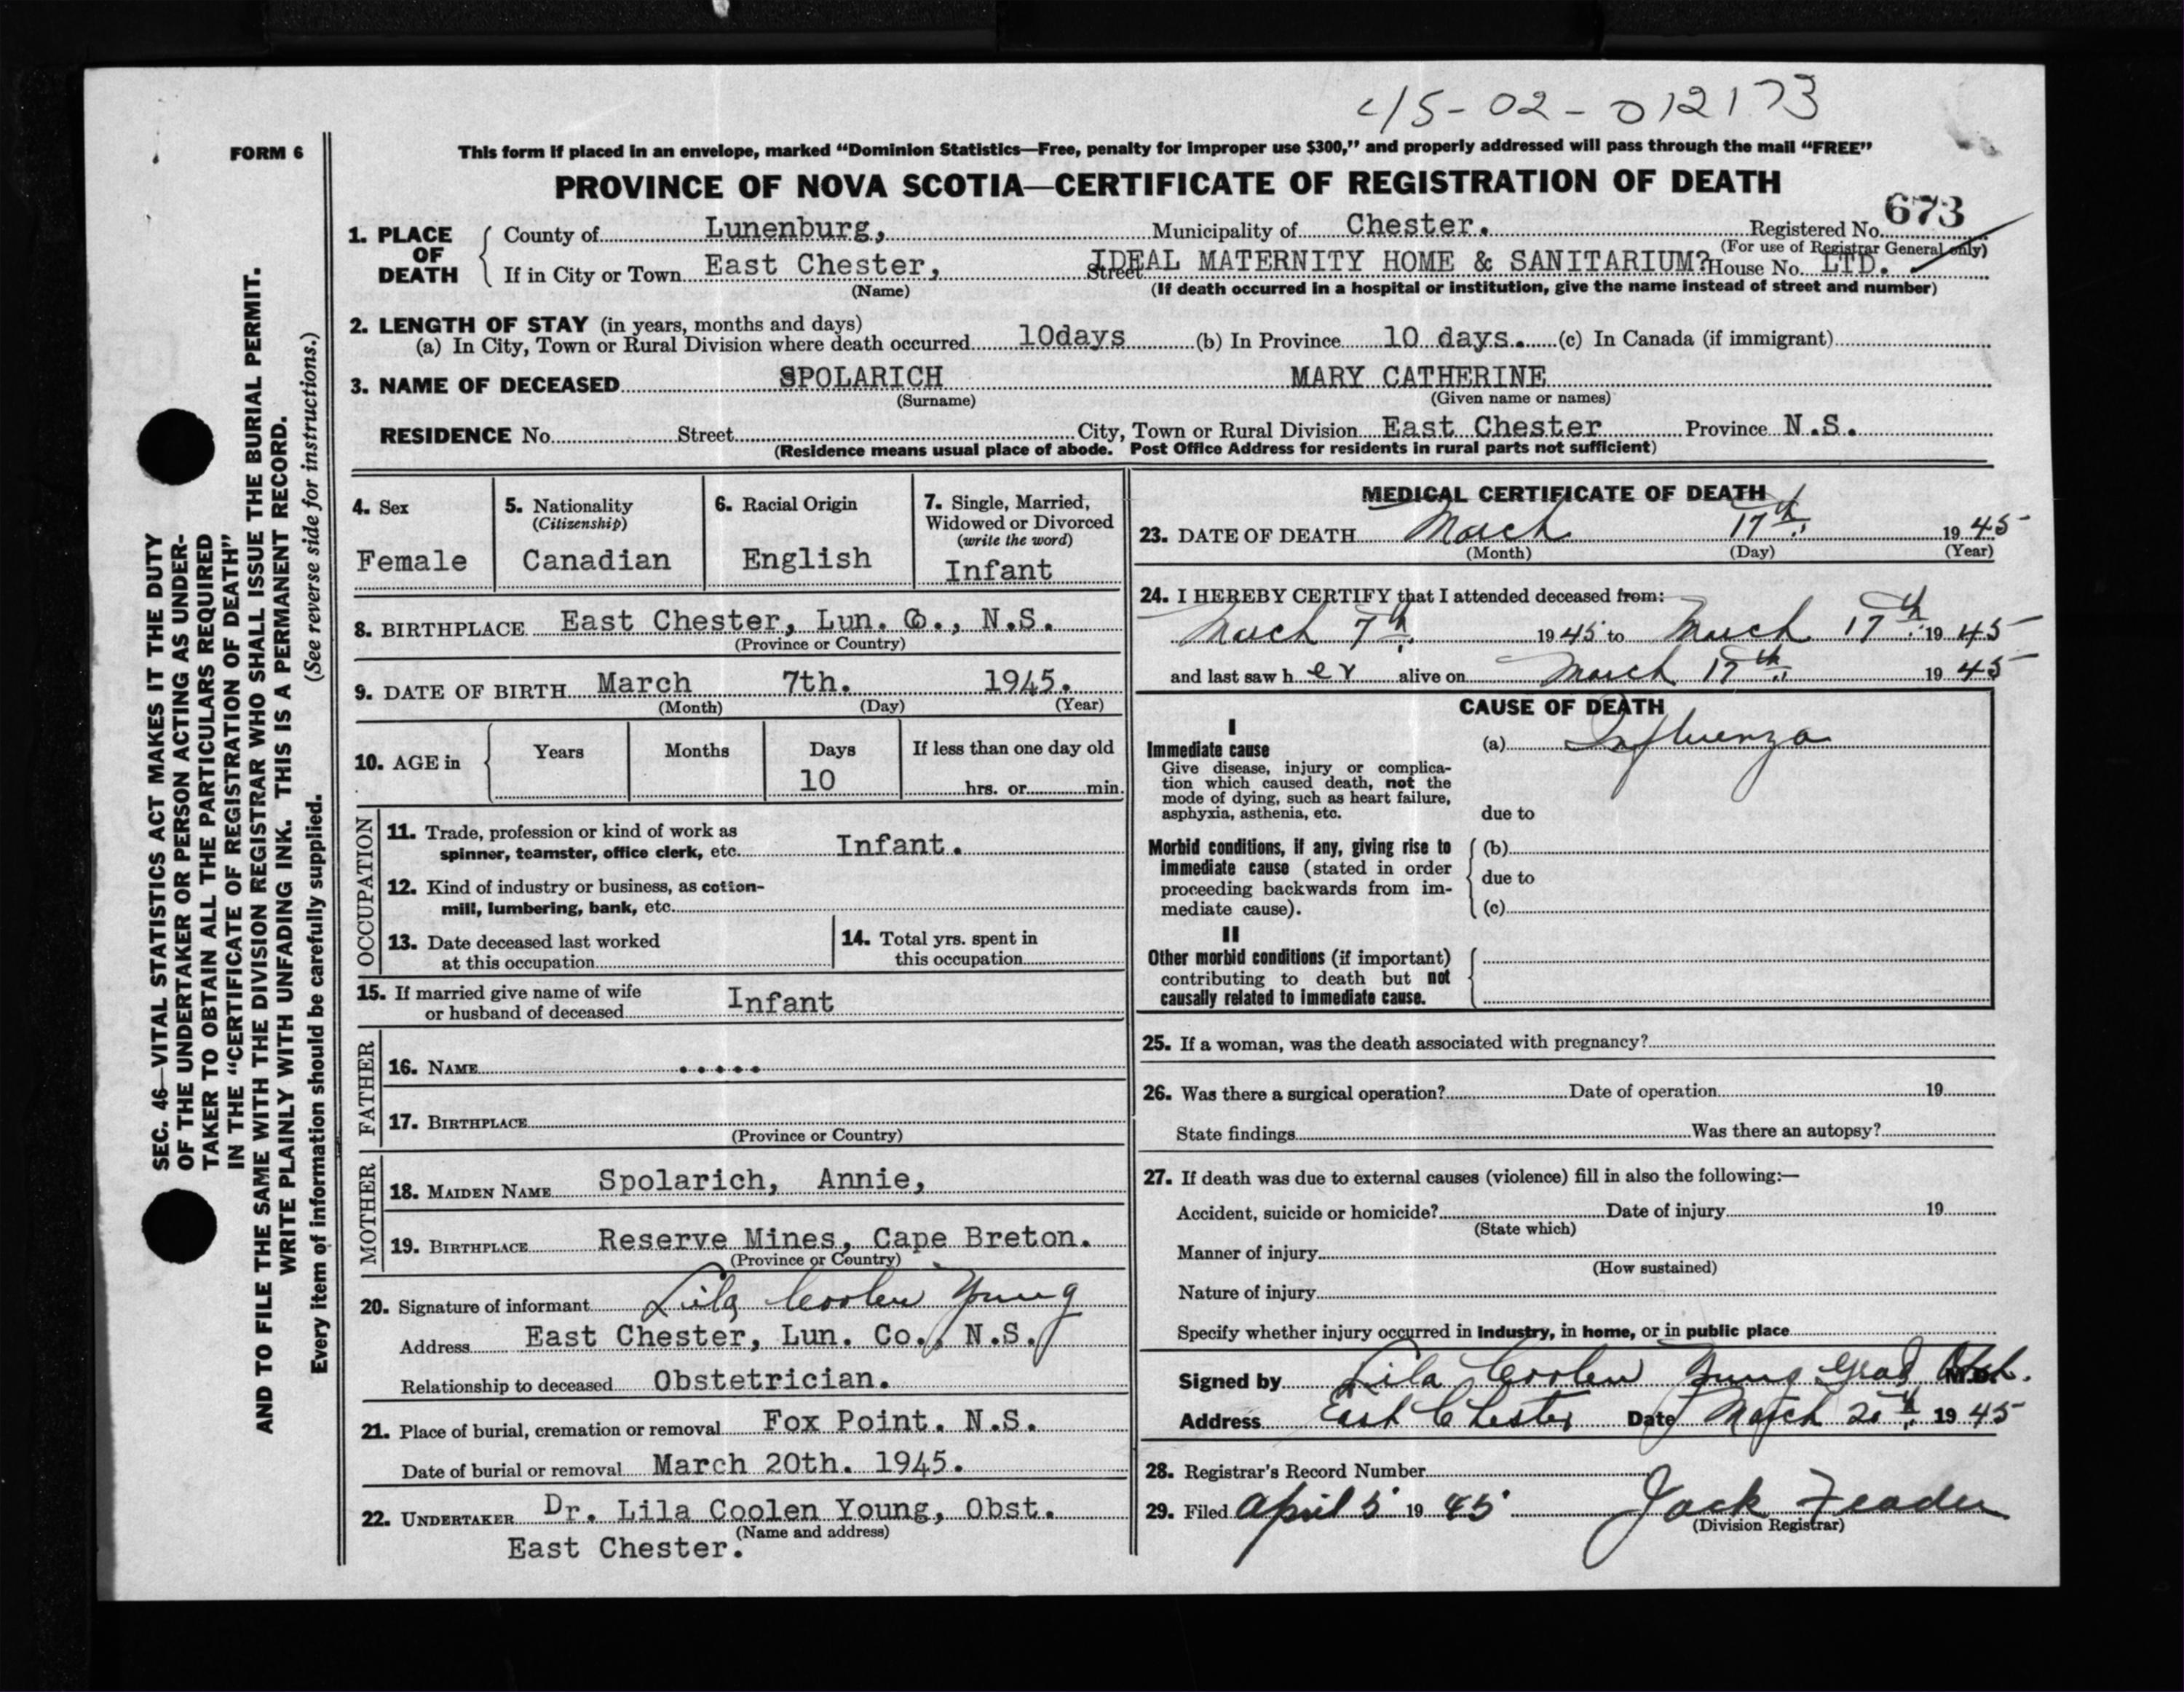 45-02-012173
FORM 6
This form if placed in an envelope, marked “Dominion Statistics—Free, penalty for improper use $300,” and properly addressed will pass through the mail “FREE”
PROVINCE OF NOVA SCOTIA—CERTIFICATE OF REGISTRATION OF DEATH
673
1. PLACE OF DEATH
County of Lunenburg, Municipality of Chester. Registered No.
(For use of Registrar General only)
If in City or Town East Chester, Street IDEAL MATERNITY HOME & SANITARIUM? House No. LTD.
(Name) (If death occurred in a hospital or institution, give the name instead of street and number)
2. LENGTH OF STAY (in years, months and days)
(a) In City, Town or Rural Division where death occurred 10days (b) In Province 10 days. (c) In Canada (if immigrant)
3. NAME OF DECEASED SPOLARICH MARY CATHERINE
(Surname) (Given name or names)
RESIDENCE No. Street City, Town or Rural Division East Chester Province N.S.
(Residence means usual place of abode. Post Office Address for residents in rural parts not sufficient)
4. Sex
Female
5. Nationality
(Citizenship)
Canadian
6. Racial Origin
English
7. Single, Married,
Widowed or Divorced
(write the word)
Infant
8. BIRTHPLACE East Chester, Lun. Co., N.S.
(Province or Country)
9. DATE OF BIRTH March 7th. 1945.
(Month) (Day) (Year)
10. AGE in
Years Months Days If less than one day old
10 hrs. or min.
OCCUPATION
11. Trade, profession or kind of work as
spinner, teamster, office clerk, etc. Infant.
12. Kind of industry or business, as cotton-
mill, lumbering, bank, etc.
13. Date deceased last worked
at this occupation
14. Total yrs. spent in
this occupation
15. If married give name of wife
or husband of deceased Infant
FATHER
16. NAME .....
17. BIRTHPLACE
(Province or Country)
MOTHER
18. MAIDEN NAME Spolarich, Annie,
19. BIRTHPLACE Reserve Mines, Cape Breton.
(Province or Country)
20. Signature of informant Lila Coolen Young
Address East Chester, Lun. Co., N.S.
Relationship to deceased Obstetrician.
21. Place of burial, cremation or removal Fox Point. N.S.
Date of burial or removal March 20th. 1945.
22. UNDERTAKER Dr. Lila Coolen Young, Obst.
(Name and address)
East Chester.
MEDICAL CERTIFICATE OF DEATH
23. DATE OF DEATH March 17th. 1945
(Month) (Day) (Year)
24. I HEREBY CERTIFY that I attended deceased from:
March 7th. 1945 to March 17th. 1945
and last saw her alive on March 17th. 1945
CAUSE OF DEATH
I
Immediate cause
Give disease, injury or complica-
tion which caused death, not the
mode of dying, such as heart failure,
asphyxia, asthenia, etc.
(a) Influenza
due to
Morbid conditions, if any, giving rise to
immediate cause (stated in order
proceeding backwards from im-
mediate cause).
(b)
due to
(c)
II
Other morbid conditions (if important)
contributing to death but not
causally related to immediate cause.
25. If a woman, was the death associated with pregnancy?
26. Was there a surgical operation? Date of operation 19
State findings Was there an autopsy?
27. If death was due to external causes (violence) fill in also the following:—
Accident, suicide or homicide? Date of injury 19
(State which)
Manner of injury
(How sustained)
Nature of injury
Specify whether injury occurred in industry, in home, or in public place
Signed by Lila Coolen Young Grad Obst. M.D.
Address East Chester Date March 20th. 1945
28. Registrar's Record Number
29. Filed April 5 1945 Jack
(Division Registrar)
SEC. 46—VITAL STATISTICS ACT MAKES IT THE DUTY
OF THE UNDERTAKER OR PERSON ACTING AS UNDER-
TAKER TO OBTAIN ALL THE PARTICULARS REQUIRED
IN THE “CERTIFICATE OF REGISTRATION OF DEATH”
AND TO FILE THE SAME WITH THE DIVISION REGISTRAR WHO SHALL ISSUE THE BURIAL PERMIT.
WRITE PLAINLY WITH UNFADING INK. THIS IS A PERMANENT RECORD.
Every item of information should be carefully supplied. (See reverse side for instructions.)